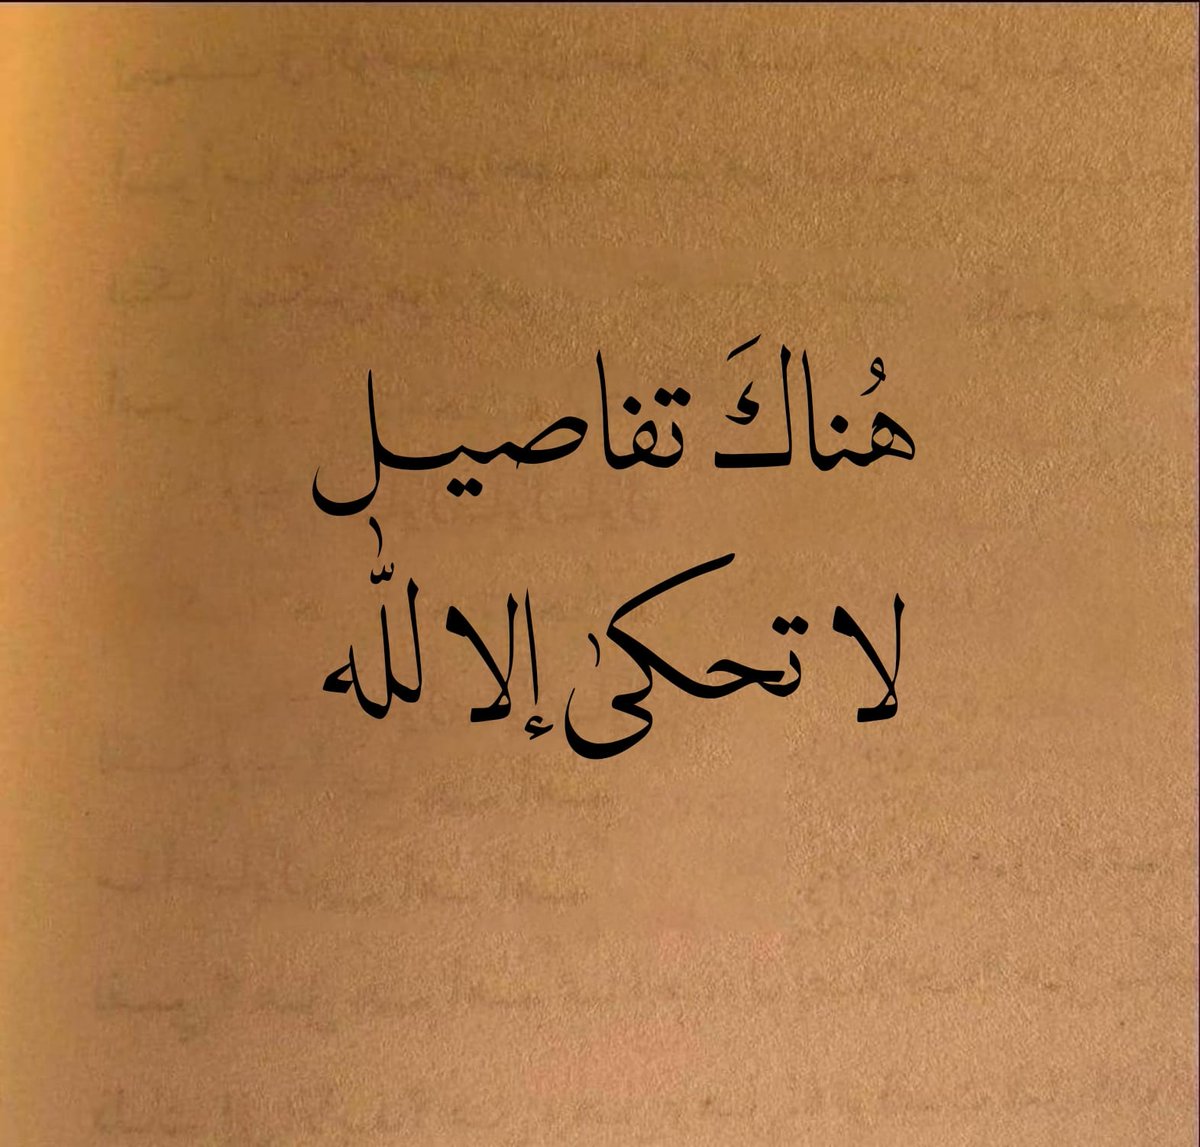 هُناكَ تفاصيل
لا تحكىٰ إلا للّٰه